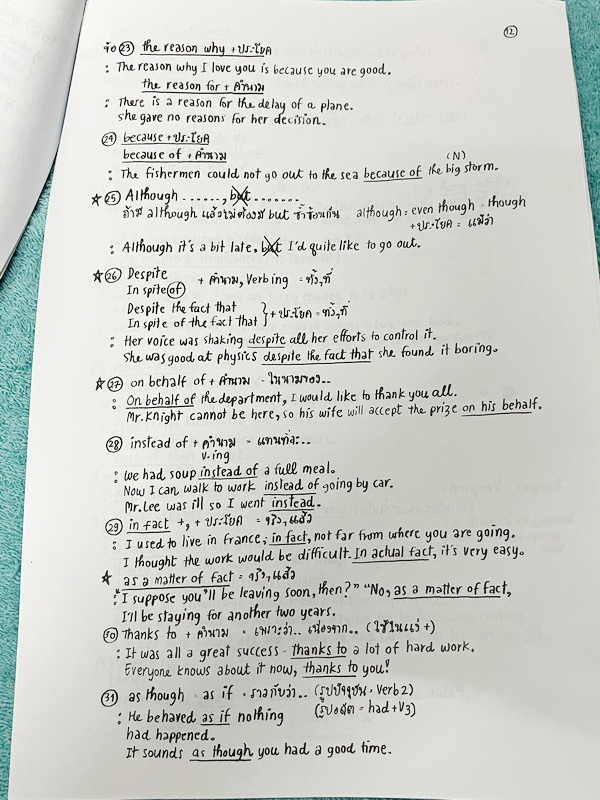 12
ข้อ 23 the reason why + ประโยค
: The reason why I love you is because you are good.
the reason for + คำนาม
: There is a reason for the delay of a plane.
She gave no reasons for her decision.
24 because + ประโยค
because of + คำนาม
(N)
: The fishermen could not go out to the sea because of the big storm.
☆ 25 Although ......, but ........
ถ้ามี although แล้วไม่ต้องมี but ซ้ำซ้อนกัน although = even though = though
+ ประโยค = แม้ว่า
: Although it's a bit late, but I'd quite like to go out.
☆ 26 Despite
In spite of + คำนาม, Verb ing = ทั้งๆที่
Despite the fact that
In spite of the fact that } + ประโยค = ทั้งๆที่
: Her voice was shaking despite all her efforts to control it.
She was good at physics despite the fact that she found it boring.
☆ 27 on behalf of + คำนาม = ในนามของ..
: On behalf of the department, I would like to thank you all.
Mr. Knight cannot be here, so his wife will accept the prize on his behalf.
28 instead of + คำนาม = แทนที่จะ..
V-ing
: We had soup instead of a full meal.
Now I can walk to work instead of going by car.
Mr. Lee was ill so I went instead.
29 in fact +, + ประโยค = จริงๆแล้ว
: I used to live in France; in fact, not far from where you are going.
I thought the work would be difficult. In actual fact, it's very easy.
☆ as a matter of fact = จริงๆแล้ว
: "I suppose you'll be leaving soon, then?" "No, as a matter of fact,
I'll be staying for another two years.
30 thanks to + คำนาม = เพราะว่า.. เนื่องจาก.. (ใช้ในแง่ +)
: It was all a great success - thanks to a lot of hard work.
Everyone knows about it now, thanks to you!
31 as though = as if = ราวกับว่า.. (รูปปัจจุบัน = Verb 2)
: He behaved as if nothing (รูปอดีต = had + V3)
had happened.
It sounds as though you had a good time.